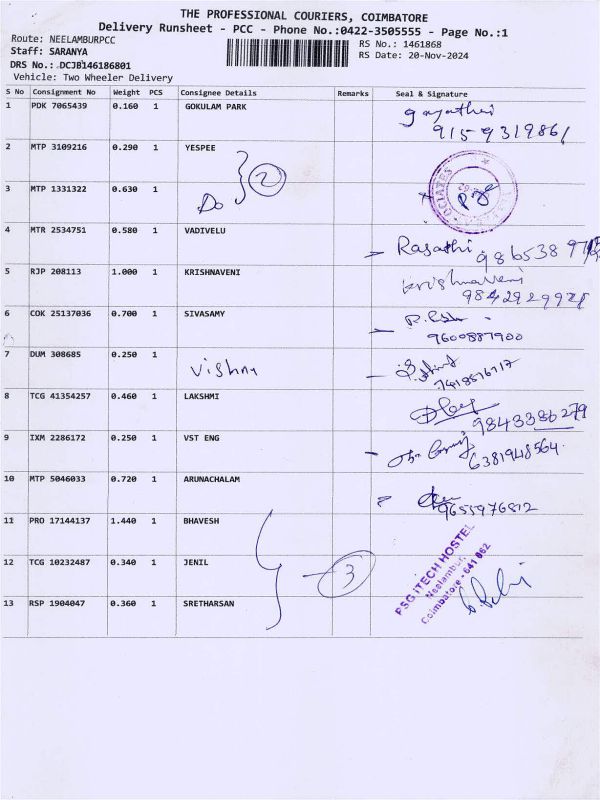 THE PROFESSIONAL COURIERS, COIMBATORE
Delivery Runsheet - PCC - Phone No.:0422-3505555 - Page No.:1
Route: NEELAMBURPCC
Staff: SARANYA
DRS No.: DCJB146186801
Vehicle: Two Wheeler Delivery
RS No.: 1461868
RS Date: 20-Nov-2024
S No Consignment No Weight PCS Consignee Details Remarks Seal & Signature
1 PDK 7065439 0.160 1 GOKULAM PARK
gayathri
9159319861
2 MTP 3109216 0.290 1 YESPEE
2
3 MTP 1331322 0.630 1
Do
4 MTR 2534751 0.580 1 VADIVELU
Rasathi
5 RJP 208113 1.000 1 KRISHNAVENI
Krishnaveni
6 COK 25137036 0.700 1 SIVASAMY
9600887900
7 DUM 308685 0.250 1 Vishnu
8 TCG 41354257 0.460 1 LAKSHMI
9843386279
9 IXM 2286172 0.250 1 VST ENG
6381948564
10 MTP 5046033 0.720 1 ARUNACHALAM
9655976812
11 PRO 17144137 1.440 1 BHAVESH
12 TCG 10232487 0.340 1 JENIL
3
PSG iTECH HOSTEL
Neelambur,
Coimbatore - 641 062
13 RSP 1904047 0.360 1 SRETHARSAN